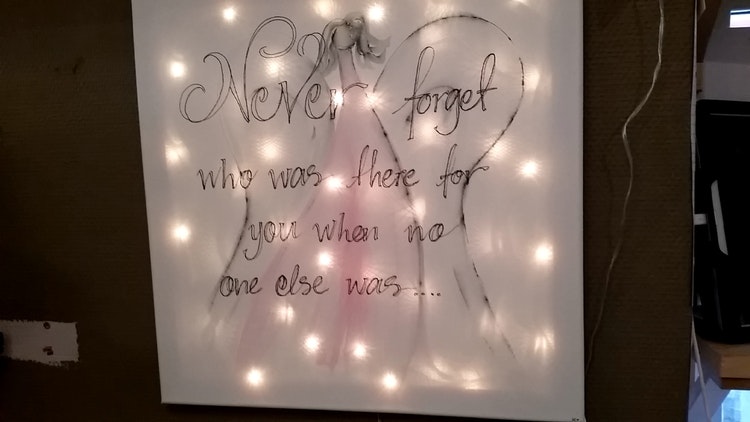 Never forget
who was there for
you when no
one else was....